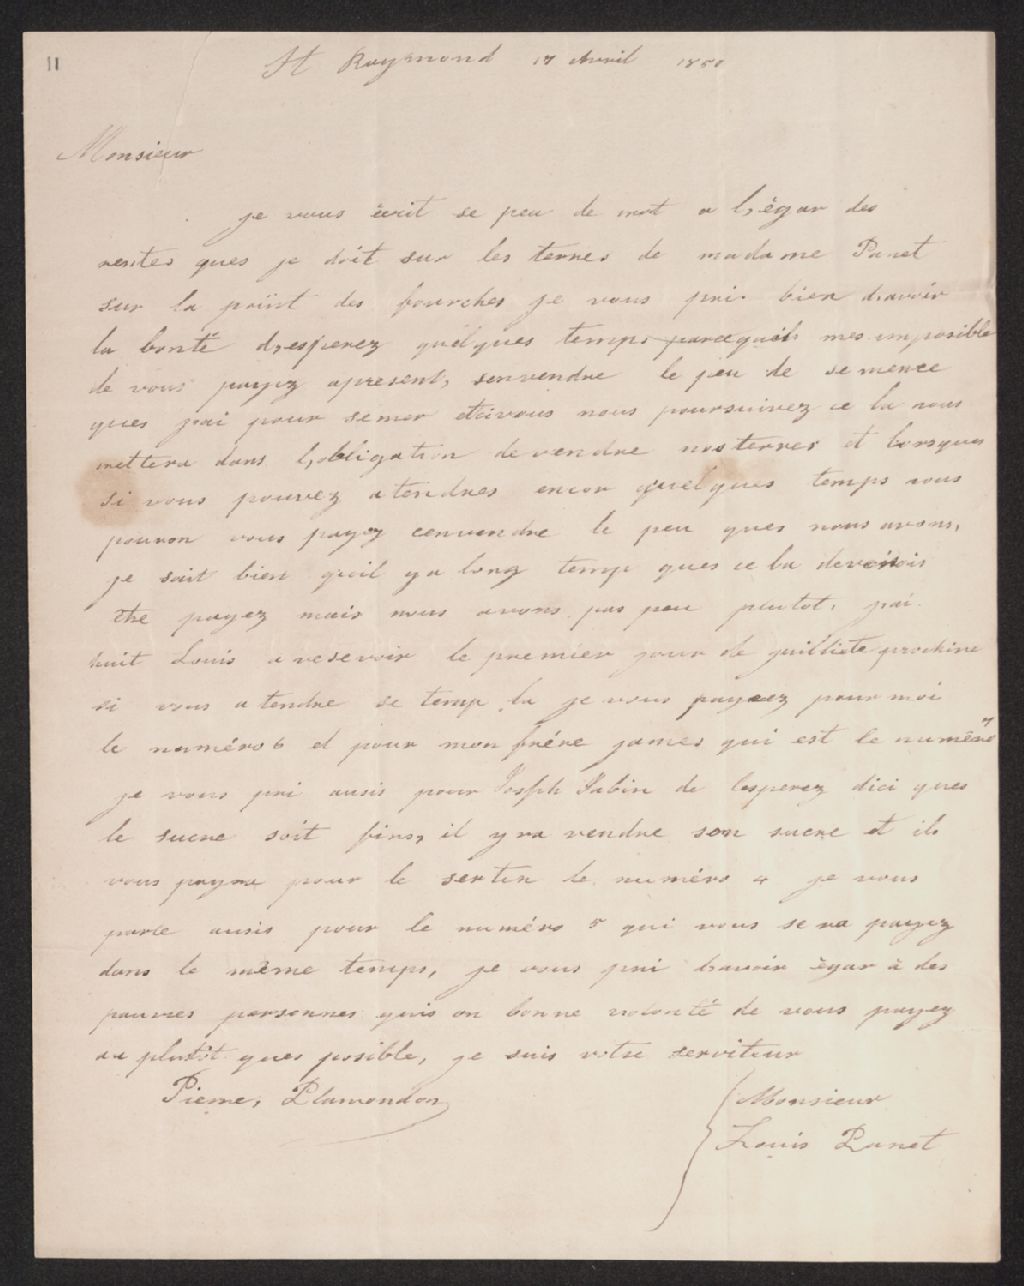 11
St Raymond 17 Avril 1850
Monsieur
je vous ècrit se peu de mot a l,égar des
rentes ques je doit sur les terres de madame Panet
sur la point des fourches je vous pri bien d,avoir
la bonté d,esperez quelques temps parcequils mes imposible
de vous payez apresent, senvendre le peu de se mence
ques jai pour semer etcivous nous poursuivez ce la nous
mettera dans l,obligation devendre nosterres et lorsques
si vous pouvez atendres encor quelques temps nous
pouron vous payez cenvendre le peu ques nous avons,
je sait bien quil ya long temp ques ce la devrois
être payez mais nous avons pas peu plutot, jai
huit Louis a resevoir le premier jour de guilliete prochine
si vous atendre se temp la je vous payeez pour moi
le numéro 6 et pour mon frére james qui est le numéro 7
je vous pri ausis pour Joseph Sabin de lesperez dici ques
le sucre soit finis, il yra vendre son sucre et il
vous payra pour le serten le numéro 4 je vous
parle ausis pour le numéro 5 qui vous se ra payez
dans le même temps, je vous pri d,avoir ègar à des
pauvres personnes quis on bonne volonté de vous payez
au plutôt ques posible, je suis votre serviteur
Pierre, Plamondon
Monsieur
Louis Panet